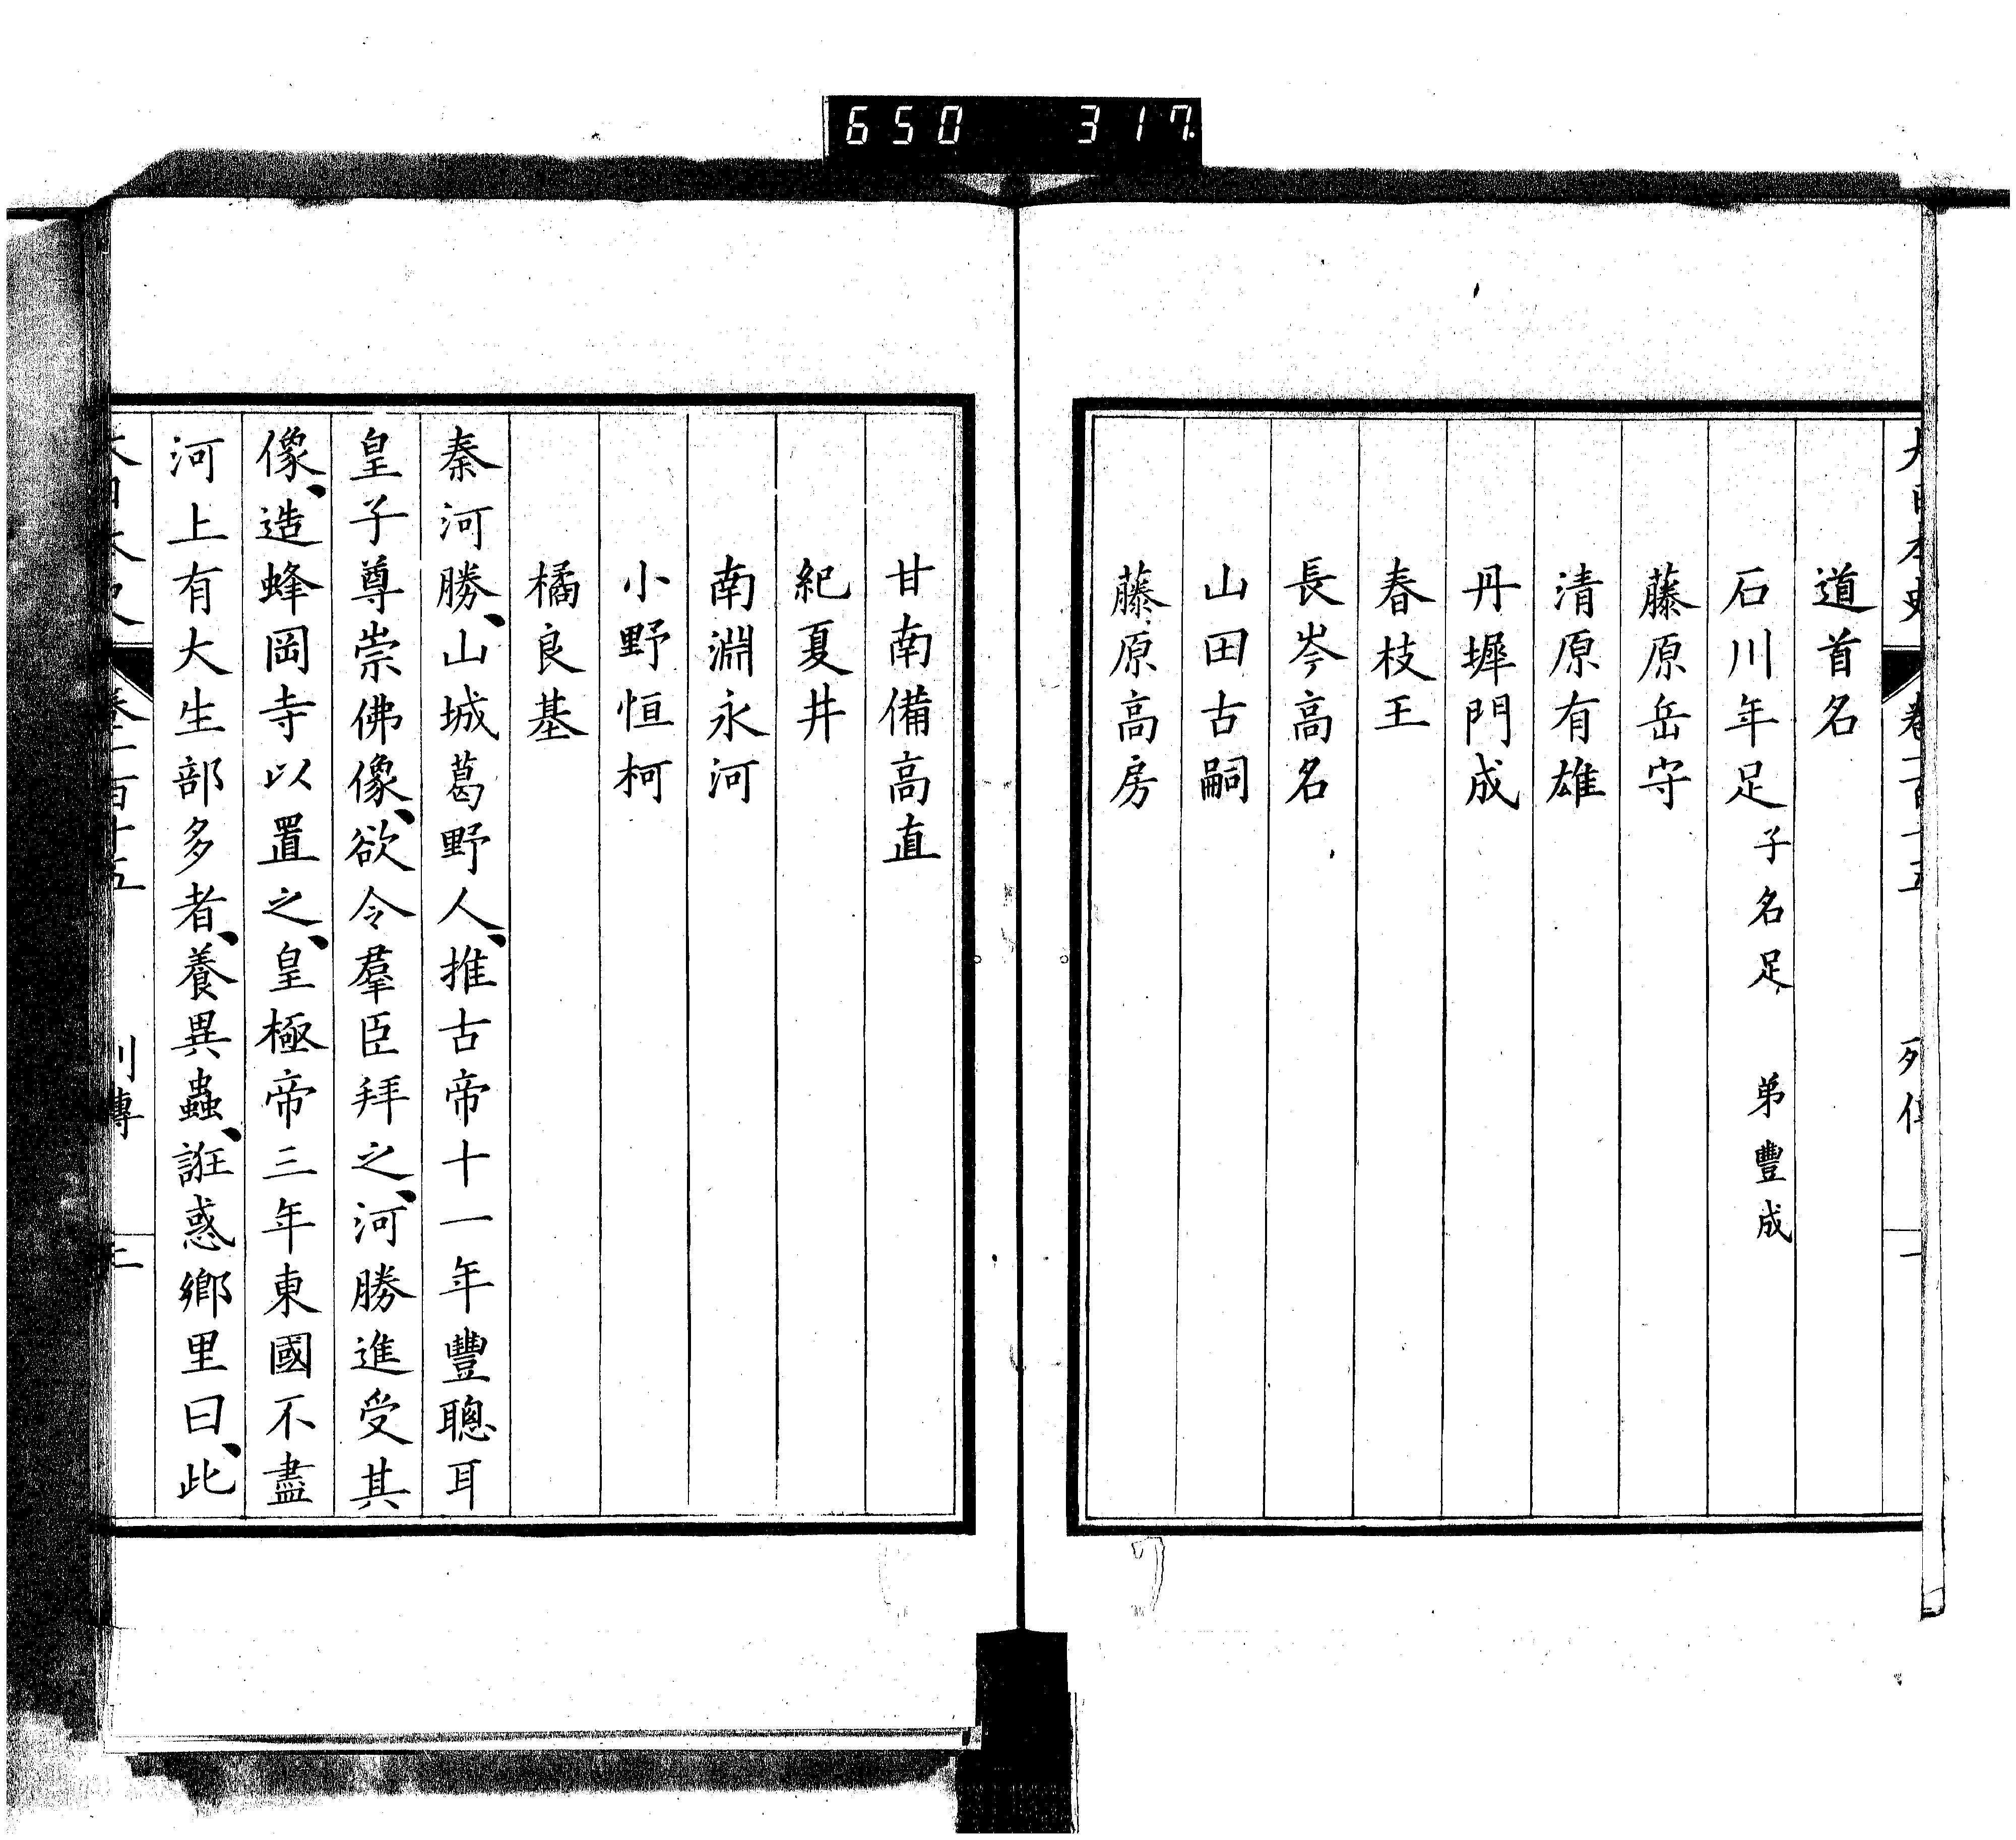 650 317
道首名
石川年足 子名足 弟豐成
藤原岳守
清原有雄
丹墀門成
春枝王
長岑高名
山田古嗣
藤原高房
甘南備高直
紀夏井
南淵永河
小野恒柯
橘良基
秦河勝、山城葛野人、推古帝十一年豐聰耳
皇子尊崇佛像、欲令羣臣拜之、河勝進受其
像、造蜂岡寺以置之、皇極帝三年東國不盡
河上有大生部多者、養異蟲、誑惑鄉里曰、此